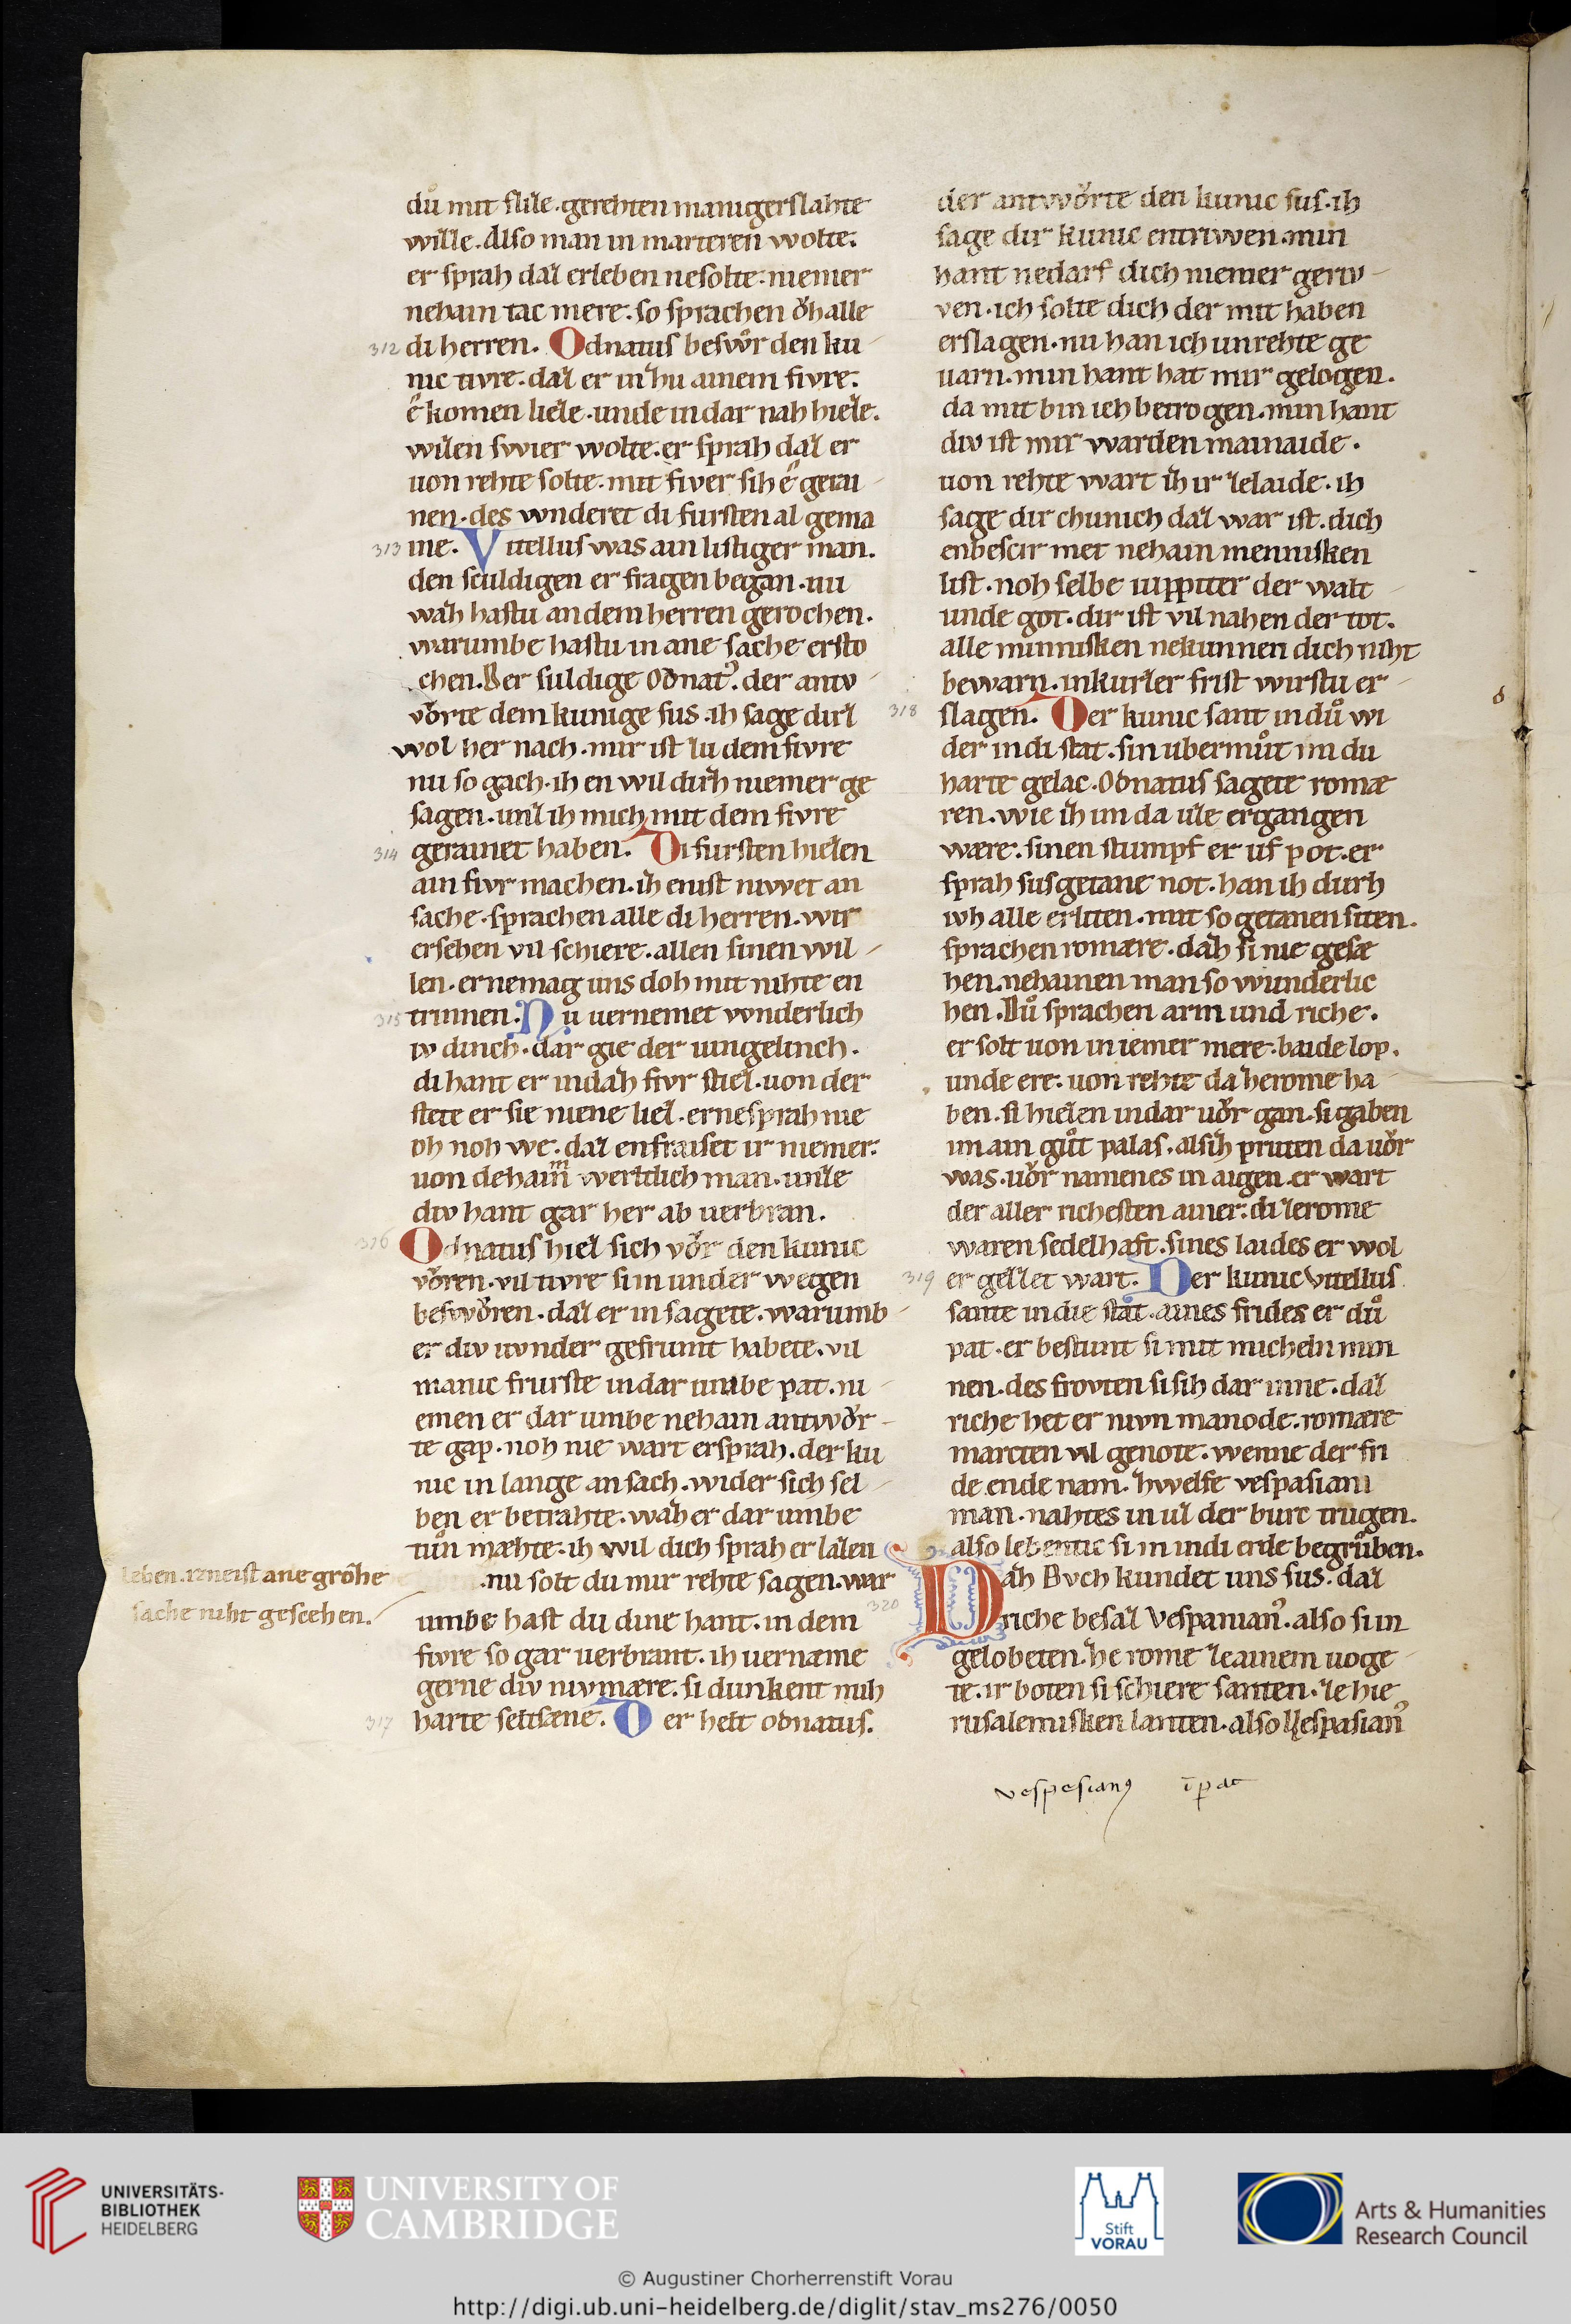 dů mit flize·gerehten manigerslahte
wille·Also man in marteren wolte:
er sprah daz erleben nesolte·niemer
nehain tac mere·so sprachen ǒh alle
312 di herren. Odnatus beswǒr den ku
nic tivre·daz er in zu ainem fivre:
ê komen lieze·unde in dar nah hieze.
wizen swier wolte·er sprah daz er
uon rehte solte·mit fiver sih ê gerai
nen·des wnderet di fursten al gema
313 ine. Vitellus was ain listiger man.
den sculdigen er fragen began·nu
waz hastu an dem herren gerochen.
warumbe hastu in ane sache ersto
chen.Der sculdige Odnatꝰ·der antv
vǒrte dem kunige sus·ih sage dirz
wol her nach·mir ist zu dem fivre
nu so gach·ih en wil dirz niemer ge
sagen·unz ih mich mit dem fivre
314 gerainet haben. Di fursten hiezen
ain fivr machen·iz enist nivvet an
sache·sprachen alle di herren·wir
ersehen vil schiere·allen sinen wil
len·ernemag uns doh mit nihte en
315 trinnen. Nu uernemet wnderlich
iv dinch·dar gie der iungelinch·
di hant er in daz fivr stiez·uon der
stete er sie niene liez·ernesprah nie
oh noh we·daz enfraiset ir niemer:
uon dehaim werltlich man·unze
div hant gar her ab uerbran.
316 Odnatus hiez sich vǒr den kunic
vǒren·vil tivre si in under wegen
beswǒren·daz er in sagete·warumb
er div wnder gefrumt habete·vil
manic frurste in dar umbe pat·ni
emen er dar umbe nehain antwǒr
te gap·noh nie wart ersprah·der ku
nic in lange an sach·wider sich sel
ben er betrahte·waz er dar umbe
tuͦn mæhte·ih wil dich sprah er lazen
leben·iz neist ane grǒze
sache niht gescehen.
nu solt du mir rehte sagen·war
umbe hast du dine hant·in dem
fivre so gar uerbrant·ih uername
gerne div nivmære·si dunkent mih
317 harte seltsæne. Der helt odnatus.
der antvvǒrte den kunic sus·ih
sage dir kunic entriwen·min
hant nedarf dich niemer geriv
ven·ich solte dich der mit haben
erslagen·nu han ich unrehte ge
uarn·min hant hat mir gelogen.
da mit bin ich betrogen·min hant
div ist mir warden mainaide·
uon rehte wart ih ir ze laide·ih
sage dir chunich daz war ist·dich
enbescir met nehain mennisken
list·noh selbe iuppiter der walt
unde got·dir ist vil nahen der tot.
alle minnisken nekunnen dich niht
bewarn·in kurzer frist wirstu er
318 slagen. Der kunic sant in duͦ wi
der in di stat·sin ubermuͦt im du
harte gelac·Odnatus sagete romæ
ren·wie iz im da uze ergangen
wære·sinen stumpf er uf pot·er
sprah sus getane not·han ih durh
ivh alle erliten·mit so getanen siten.
sprachen romære·daz si nie gesæ
hen·nehainen man so wunderlic
hen·Duͦ sprachen arm und riche·
er solt uon in iemer mere·baide lop.
unde ere·uon rehte da ze rome ha
ben·si hiezen in dar uǒr gan·si gaben
im ain guͦt palas·als iz pruten da uǒr
was·uǒr namenes in aigen·er wart
der aller richesten ainer·di ze rome
waren sedelhaft·sines laides er wol
319 ergezzet wart. Der kunic vitellus
sante in die stat·aines frides er duͦ
pat·er bestunt si mit micheln min
nen·des frovten si sih dar inne·daz
riche het er nivn manode·romære
marcten vil genote·wenne der fri
de ende nam·zwelfe vespasiani
man·nahtes in uz der burc trugen.
also lebentic si in in di erde begruͦben.
Daz Bvch kundet uns sus·daz
320 riche besaz Vespanianꝰ·also si in
gelobeten·ze rome ze ainem uoge
te·ir boten si schiere santen·ze hie
rusalemisken lanten·also Uespasianꝰ
vespesianꝰ īpat
UNIVERSITÄTS-
BIBLIOTHEK
HEIDELBERG
UNIVERSITY OF
CAMBRIDGE
Stift
VORAU
Arts & Humanities
Research Council
© Augustiner Chorherrenstift Vorau
http://digi.ub.uni-heidelberg.de/diglit/stav_ms276/0050